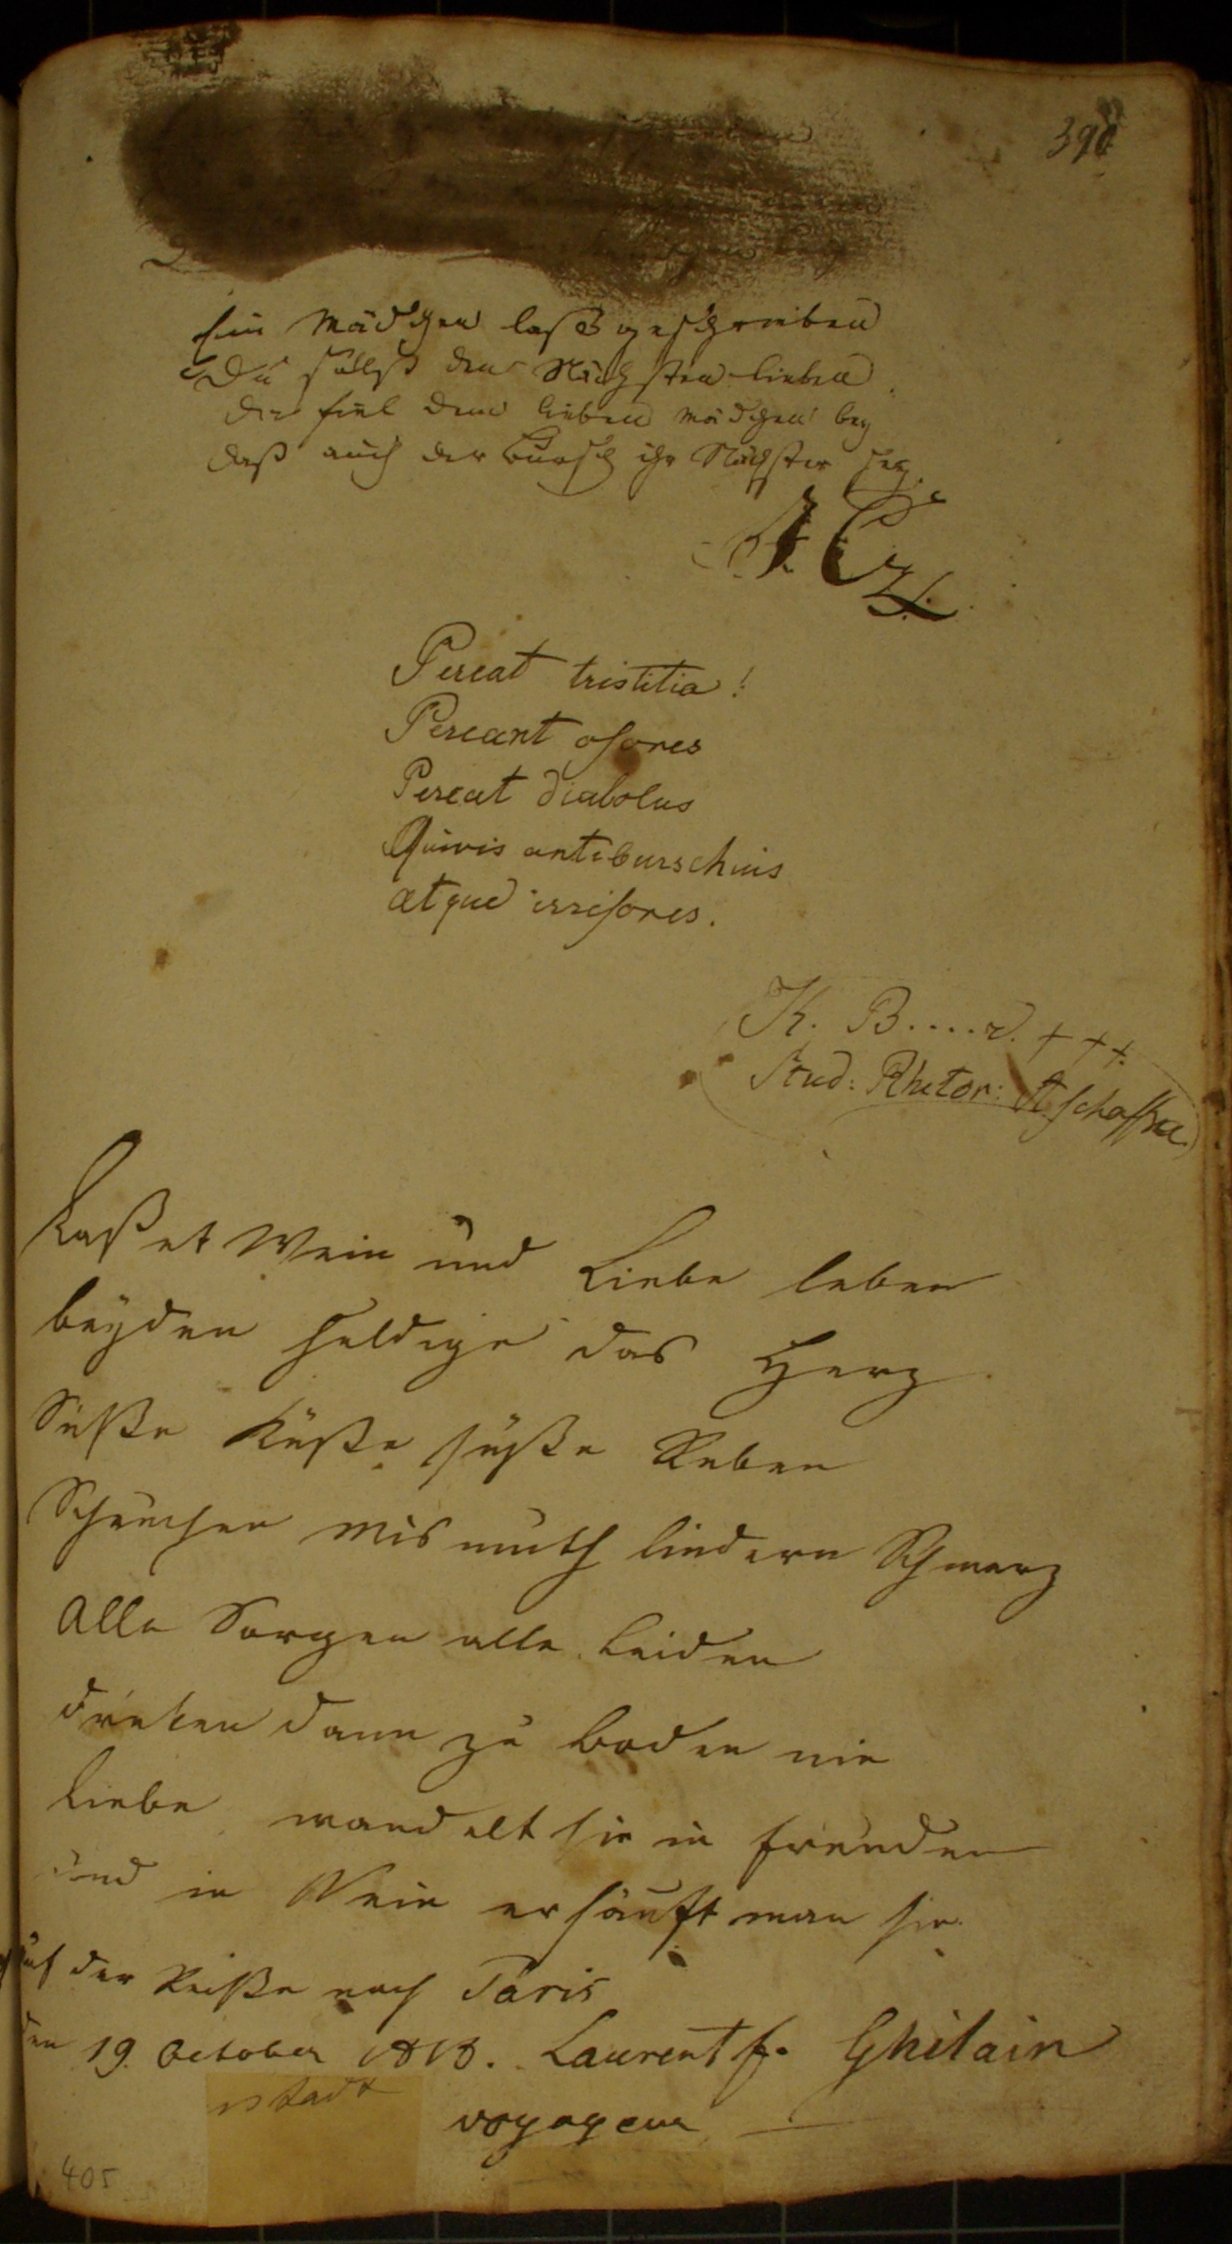 390
Ein Mädchen laß geschrieben
Du sollst den Nächsten lieben
da fiel dem lieben Mädchen bey
daß auch der Bursch ihr Nächster sey.
Pereat tristitia!
Pereant osores
Pereat diabolus
Quivis antiburschius
atque irrisores.
K. B....d. +++
Stud: Rhetor: Aschaffba
Laßet Wein und Liebe leben
beyden huldige das Herz
Süße Küße süße Reben
Scheuchen Mismuth lindern Schmerz
Alle Sorgen alle Leiden
drücken dann zu boden nie
Liebe wandelt sie in freuden
und in Wein ersäuft man sie.
Auf der Reiße nach Paris
den 19. October 1818. Laurent f. Ghilain
voyageur
stadt
405